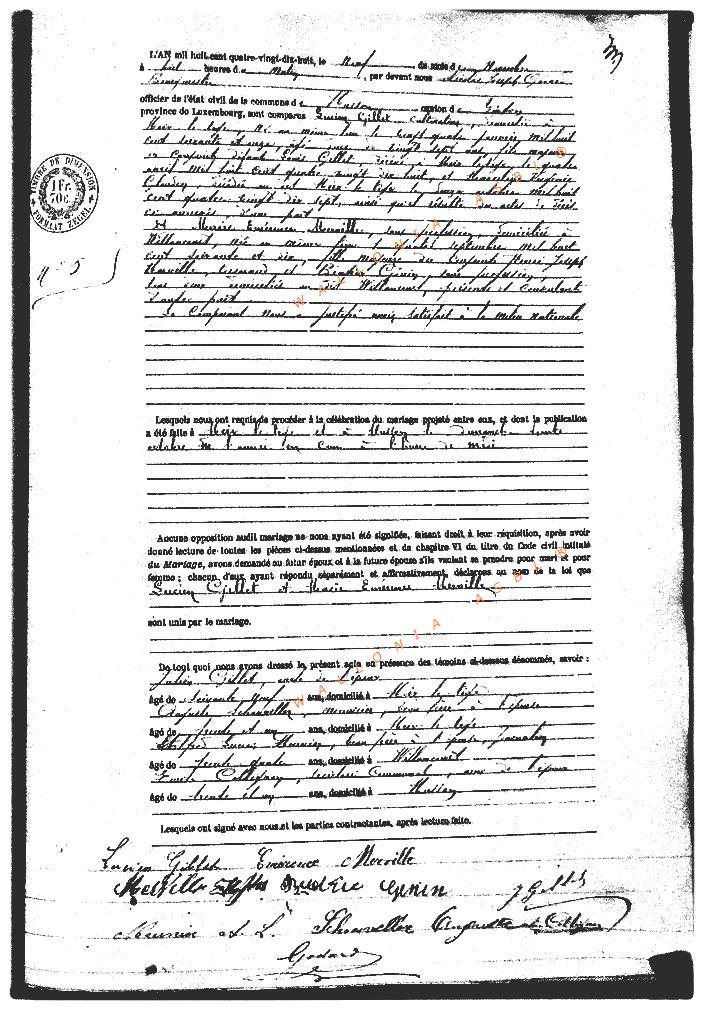 L'AN mil huit cent quatre-vingt-dix-huit, le Neuf du mois de Novembre
à huit heures du Matin, par devant nous Nicolas Joseph
Bourgmestre
officier de l'état civil de la commune de Musson canton de
province de Luxembourg, sont comparus Lucien Gillet cultivateur, domicilié à
Meix le tige, Né au même lieu le vingt quatre janvier mil huit
cent soixante et onze, âgé de vingt sept ans, fils majeur
et Consent défunt Louis Gillet, décédé à Meix le tige, le quatre
mil huit cent quatre vingt dix huit, et Marceline Eugénie
décédée au dit Meix le tige le onze octobre mil huit
cent quatre vingt dix sept, ainsi qu'il résulte des actes de décès
ci annexés d'une part
Et Marie Emérence Merville, sans profession, domiciliée à
Willancourt, Née au même lieu le septembre mil huit
cent soixante et dix, fille majeure des conjoints Henri Joseph
Merville, et Génin, sans profession,
tous deux domiciliés au dit Willancourt, présents et consentants
d'autre part
Le Comparant Nous a justifié avoir satisfait à la milice nationale
TIMBRE DE DIMENSION
1 Fr.
70c.
FORMAT ZEGEL
N° 5
Lesquels nous ont requis de procéder à la célébration du mariage projeté entre eux, et dont la publication
a été faite à Meix le tige et à Musson le dimanche trente
octobre de l'année en cours à l'heure de midi
Aucune opposition audit mariage ne nous ayant été signifiée, faisant droit à leur réquisition, après avoir
donné lecture de toutes les pièces ci-dessus mentionnées et du chapitre VI du titre du Code civil intitulé
du Mariage, avons demandé au futur époux et à la future épouse s'ils veulent se prendre pour mari et pour
femme ; chacun d'eux ayant répondu séparément et affirmativement, déclarons au nom de la loi que
Lucien Gillet et Marie Emérence Merville
sont unis par le mariage.
De tout quoi nous avons dressé le présent acte en présence des témoins ci-dessous dénommés, savoir :
Julien Gillet, oncle de l'époux
âgé de soixante Neuf ans, domicilié à Meix le tige
Auguste Schouveller, menuisier, beau frère à l'époux
âgé de trente et un ans, domicilié à Meix le tige
Meunier, beau frère à l'épouse, journalier
âgé de trente quatre ans, domicilié à Willancourt
Emile Collignon, secrétaire Communal, ami de l'époux
âgé de trente et un ans, domicilié à Musson
Lesquels ont signé avec nous et les parties contractantes, après lecture faite.
Lucien Gillet Emérence Merville
Merville Génin J Gillet
Meunier Schouveller Auguste Collignon
Godard
WALLONIA ASBL ©
WALLONIA ASBL ©